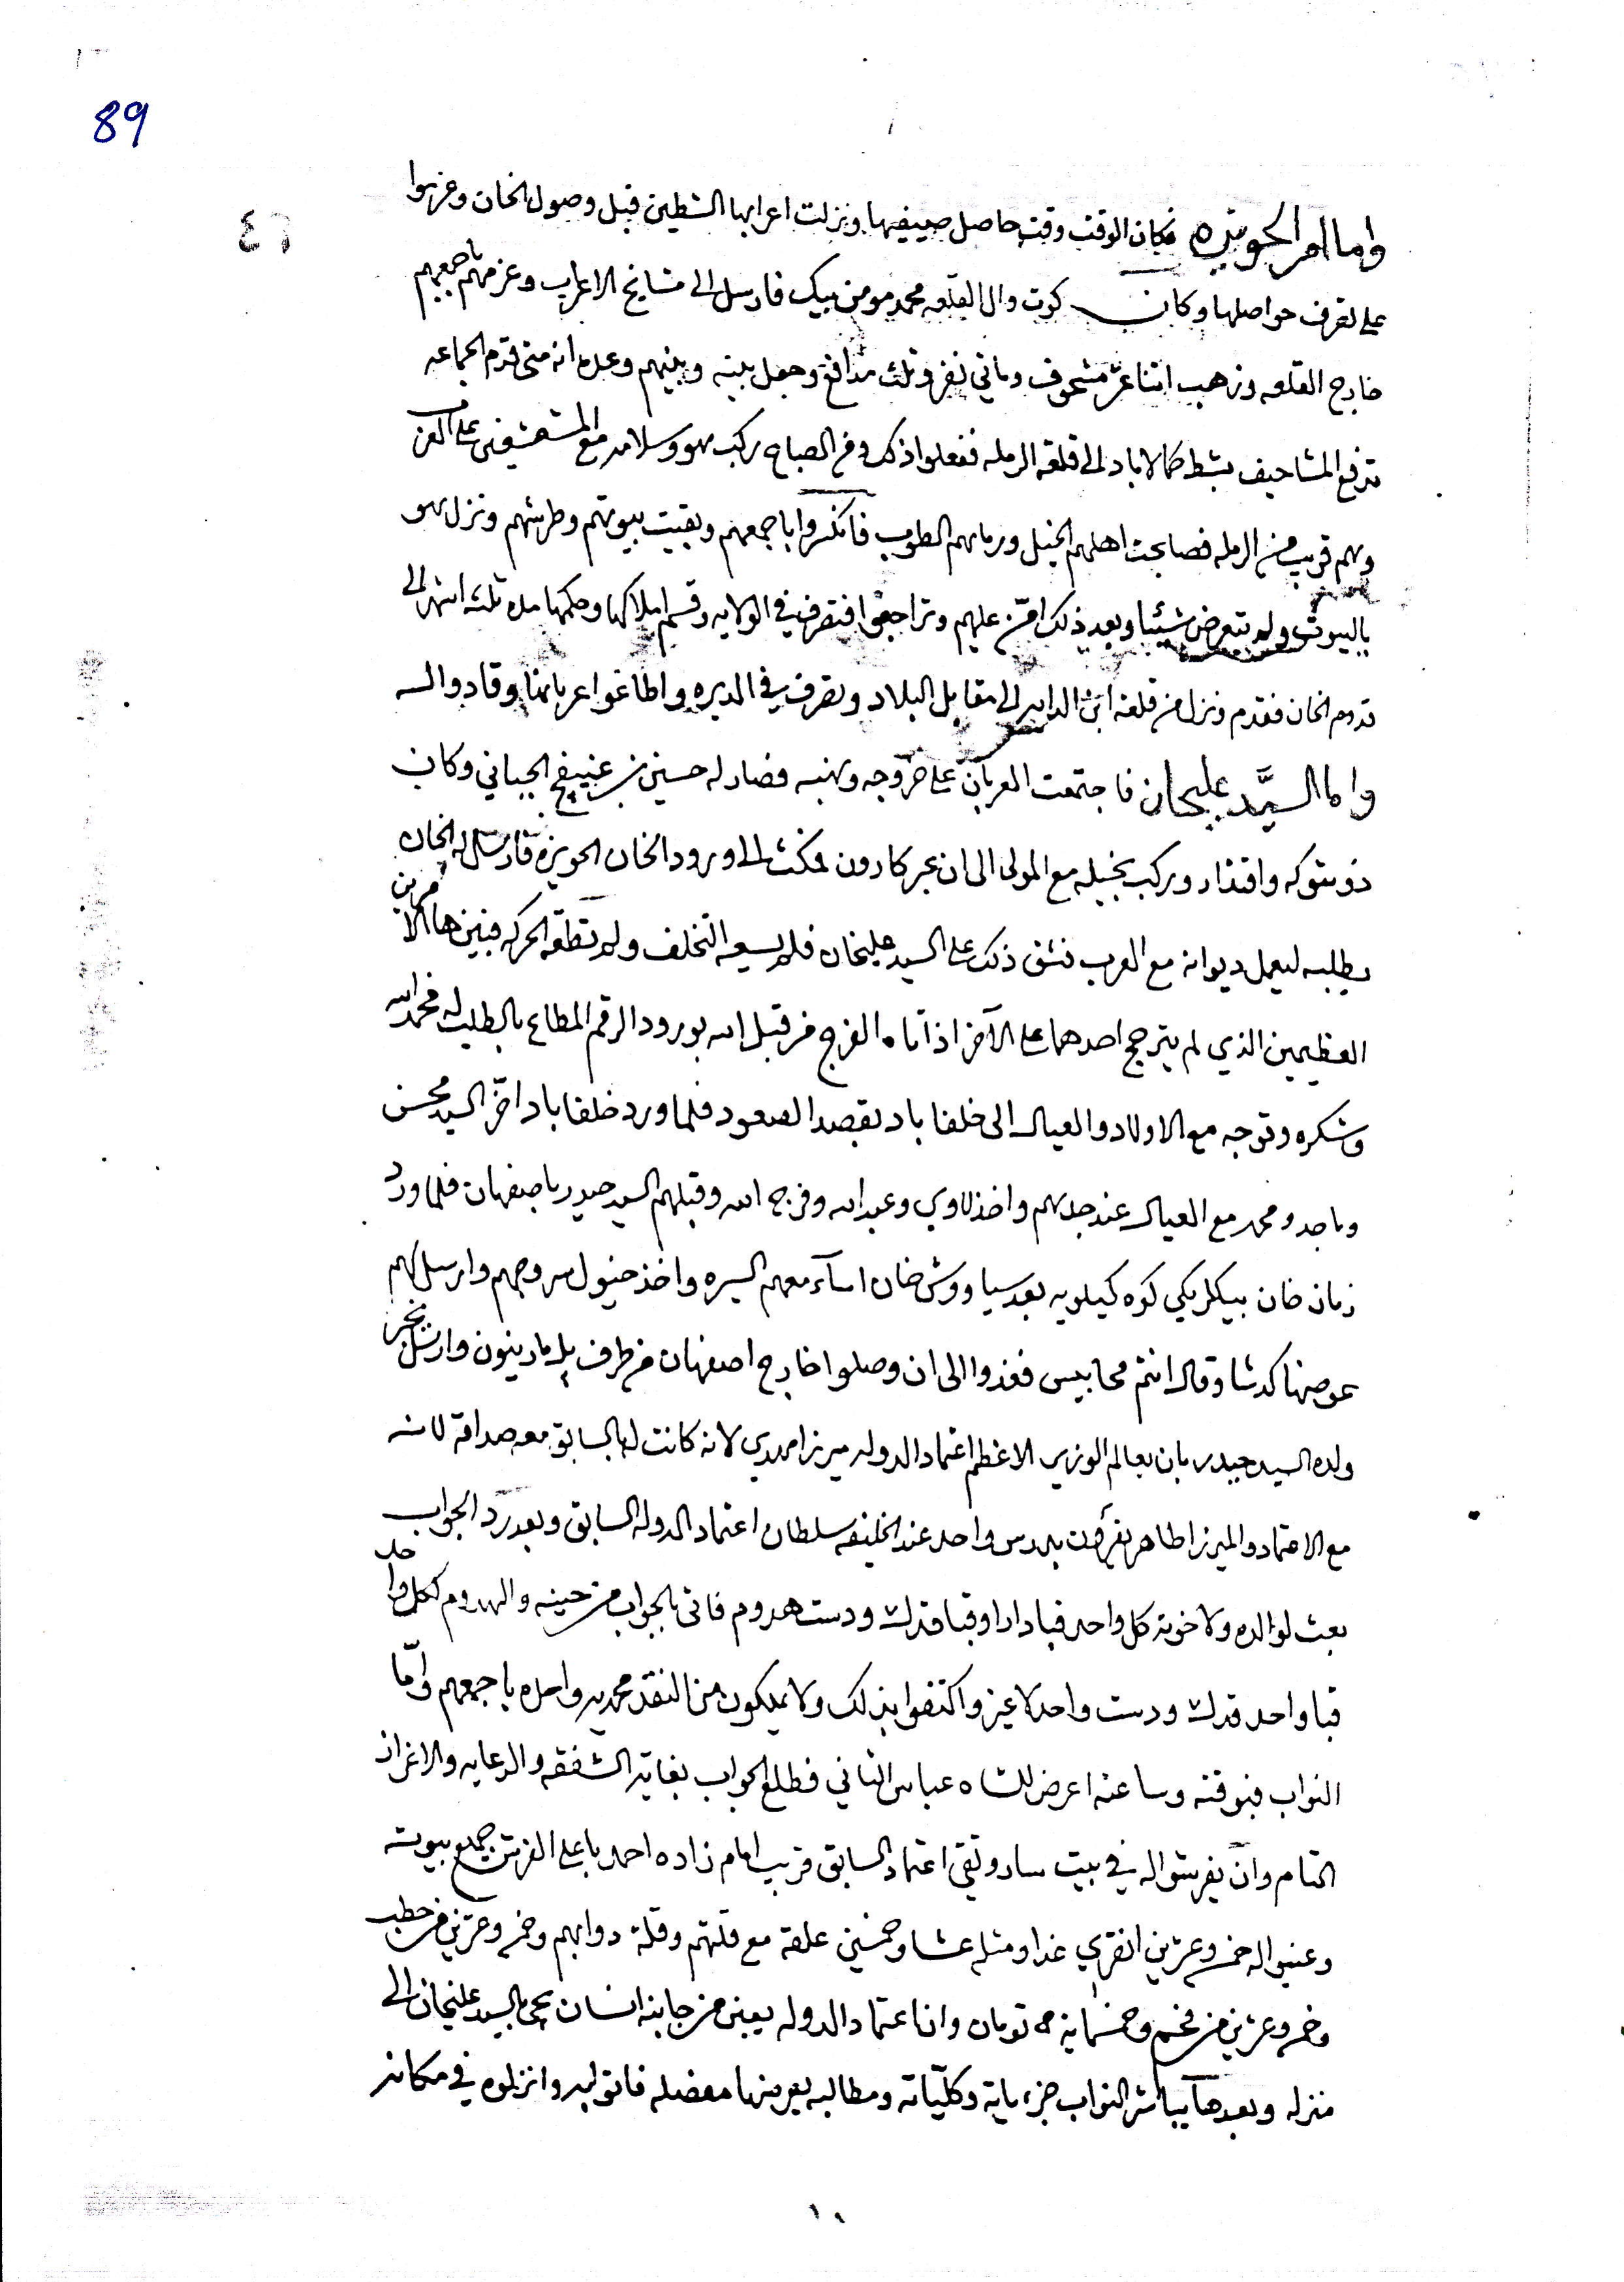 89
٤٦
واما امر الحويزه فكان الوقت وقت حاصل صيفيها ونزلت اعرابها الشطين قبل وصول الخان وعزموا
على تصرف حواصلها وكان كوت وال القلعه محمد مومن بيك فارسل الى مشايخ الاعراب وعزمهم باجمعهم
خارج القلعه وذهب اثنا عشر مشحوف وماني نفر وثلث مدافع وجعل بينه وبينهم وعده انه متى قدم الجماعه
ترفع المشاحيف بشط كمالاباد الى قلعة الرمله ففعلوا ذلك وفي الصباح ركب هو وسلامه مع
وهم قريب من الرمله فصابحت اهلهم الخيل ورماهم الطوب فانكسروا باجمعهم وبقيت بيوتهم وطرشهم ونزل هو
بالبيوت ولم يتعرض شيئا وبعد ذلك امّن عليهم وتراجعوا فتصرف في الولايه وقسم املاكها وحكمها مده ثلثه اشهر الى
قدوم الخان فقدم ونزل من قلعة ابن الداير الى مقابل البلاد وتصرف في الديره واطاعوا عربانها وقادوا له
واما السيَّد عليخان فاجتمعت العربان على خروجه ونهبه فصار له حسين بن عنيفج الجباني وكان
ذو شوكه واقتدار وركب بخيله مع المولى الى ان عبر كارون فمكث الى ورود الخان الحويزه فارسل له الخان
يطلبه ليعمل ديوانه مع العرب فشق ذلك على السيد عليخان فلم يسعه التخلف ولم تطقه الحركه فبين هاالامرين
العظيمين الذي لم يترجح احدهما على الآخر اذ اتاه الفرج من قبل الله بورود الرقم المطاع بالطلب له فحمد الله
وشكره وتوجه مع الاولاد والعيال الى خلفاباد بقصد الصعود فلما ورد خلفاباد اخّر السيد محسن
وماجد ومحمد مع العيال عند جدهم واخذ لاوي وعبدالله وفرج الله وقبلهم السيد حيدر باصفهان فلما ورد
زمان خان بيكلربكي كوه كيلويه بعد سياووش خان اسآء معهم السيره واخذ خيول سروجهم وارسل لهم
عوضها كدشا وقال انتم محابيس فغذوا الى ان وصلوا خارج اصفهان من طرف پل مارينون وارسل يخبر
ولده السيد حيدر بان يعالم الوزير الاعظم اعتماد الدوله ميرزا مهدي لانه كانت له بالسابق معه صداقه لانه
مع الاعتماد والميرزا طاهر يقرؤن بدرس واحد عند الخليفه سلطان اعتماد الدوله السابق وبعد ردّ الجواب
بعث لوالده ولاخوته كل واحد قبا دارا وقبا قدك ودست هدوم فاتى بالجواب من حينه والهدوم لكل واحد
قبا واحد قدك ودست واحد لا غير واكتفوا بذلك ولا يملكون من النقد محمديه واحده باجمعهم وامّا
النواب فبوقته وساعته اعرض للشاه عباس الثاني فطلع الجواب بغاية الشفقه والرعايه والاعزاز
التام وانّ يفرشوا له في بيت سارو تقي اعتماد السابق قريب امام زاده احمد باعلى الفرش جميع بيوته
وعينوا له خمس وعشرين انفري غدا ومثله عشا وخمسين علفة مع قلتهم وقلة دوابهم وخمس وعشرين من حطب
وخمس وعشرين من فحم وخمسماية تومان وان اعتماد الدوله يعين من جانبه انسان يجي بالسيد عليخان الى
منزله وبعدها يباشر النواب جزءياته وكليّاته ومطالبه يعرضها مفصله فاتوا به وانزلوه في مكانه